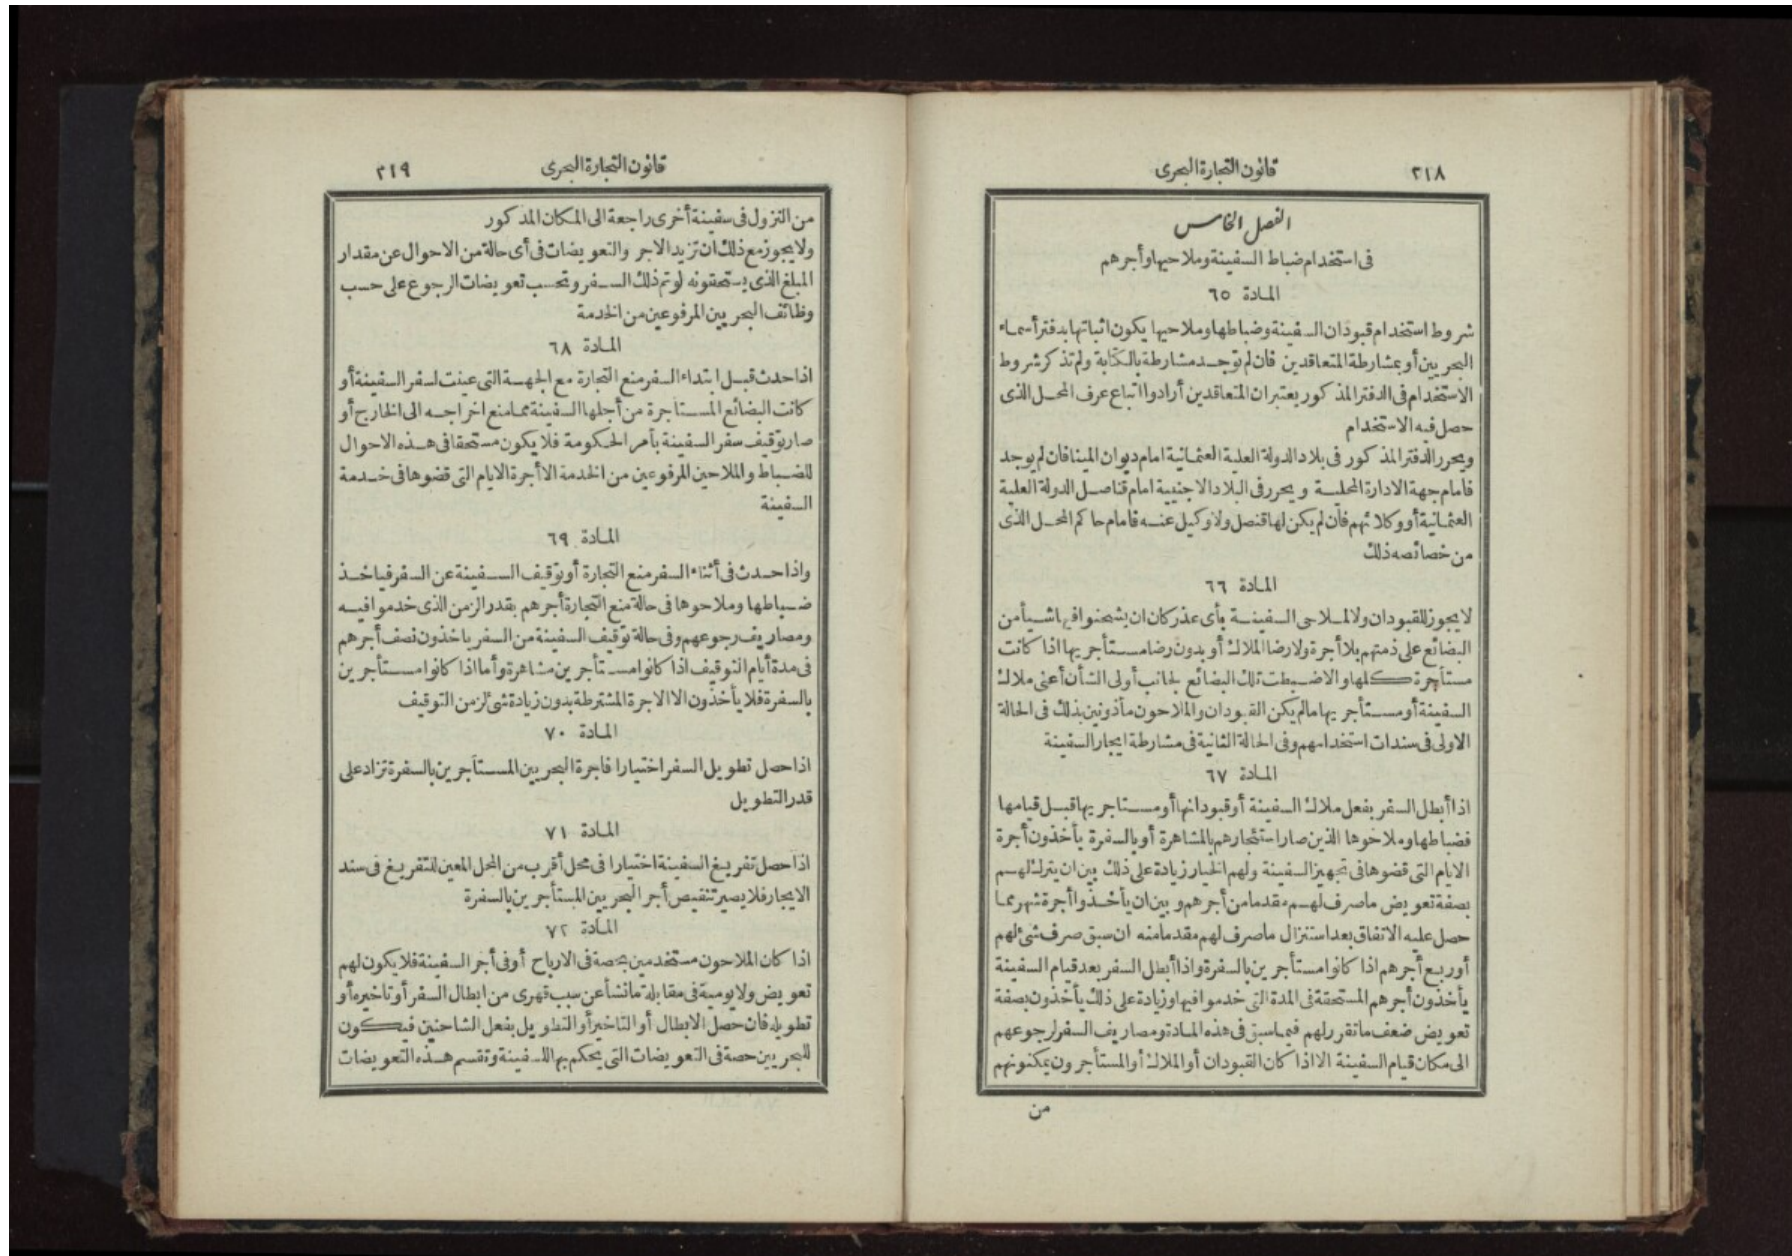 ٢١٨ قانون التجارة البحرى
الفصل الخامس
فى استخدام ضباط السفينة وملاحيها وأجرهم
المادة ٦٥
شروط استخدام قبودان السفينة وضباطها وملاحيها يكون اثباتها بدفتر أسماء
البحريين أو بمشارطة المتعاقدين فان لم توجد مشارطة بالكتابة ولم تذكر شروط
الاستخدام فى الدفتر المذكور يعتبر ان المتعاقدين أرادوا اتباع عرف المحل الذى
حصل فيه الاستخدام
ويحرر الدفتر المذكور فى بلاد الدولة العلية العثمانية امام ديوان المينا فان لم يوجد
فامام جهة الادارة المحلية ويحرر فى البلاد الاجنبية امام قناصل الدولة العلية
العثمانية أو وكلائهم فان لم يكن لها قنصل ولا وكيل عنه فامام حاكم المحل الذى
من خصائصه ذلك
المادة ٦٦
لا يجوز للقبودان ولا لملاحى السفينة بأى عذر كان ان يشحنوا فيها شيأ من
البضائع على ذمتهم بلا أجرة ولا رضا الملاك أو بدون رضا مستأجريها اذا كانت
مستأجرة كلها والا ضبطت تلك البضائع لجانب أولى الشأن أعنى ملاك
السفينة أو مستأجريها مالم يكن القبودان والملاحون مأذونين بذلك فى الحالة
الاولى فى سندات استخدامهم وفى الحالة الثانية فى مشارطة ايجار السفينة
المادة ٦٧
اذا أبطل السفر بفعل ملاك السفينة أو قبودانها أو مستاجريها قبل قيامها
فضباطها وملاحوها الذين صار استئجارهم بالمشاهرة أو بالسفرة يأخذون أجرة
الايام التى قضوها فى تجهيز السفينة ولهم الخيار زيادة على ذلك بين ان يترك لهم
بصفة تعويض ما صرف لهم مقدما من أجرهم وبين ان يأخذوا أجرة شهر مما
حصل عليه الاتفاق بعد استنزال ما صرف لهم مقدما منه ان سبق صرف شئ لهم
أو ربع أجرهم اذا كانوا مستأجرين بالسفرة واذا أبطل السفر بعد قيام السفينة
يأخذون أجرهم المستحقة فى المدة التى خدموا فيها وزيادة على ذلك يأخذون بصفة
تعويض ضعف ما تقرر لهم فيما سبق فى هذه المادة ومصاريف السفر لرجوعهم
الى مكان قيام السفينة الا اذا كان القبودان أو الملاك أو المستأجرون يمكنونهم
من
قانون التجارة البحرى ٢١٩
من النزول فى سفينة أخرى راجعة الى المكان المذكور
ولا يجوز مع ذلك ان تزيد الاجر والتعويضات فى أى حالة من الاحوال عن مقدار
المبلغ الذى يستحقونه لو تم ذلك السفر وتحسب تعويضات الرجوع على حسب
وظائف البحريين المرفوعين من الخدمة
المادة ٦٨
اذا حدث قبل ابتداء السفر منع التجارة مع الجهة التى عينت لسفر السفينة أو
كانت البضائع المستاجرة من أجلها السفينة مما منع اخراجه الى الخارج أو
صار توقيف سفر السفينة بأمر الحكومة فلا يكون مستحقا فى هذه الاحوال
للضباط والملاحين المرفوعين من الخدمة الا أجرة الايام التى قضوها فى خدمة
السفينة
المادة ٦٩
واذا حدث فى أثناء السفر منع التجارة أو توقيف السفينة عن السفر فيأخذ
ضباطها وملاحوها فى حالة منع التجارة أجرهم بقدر الزمن الذى خدموا فيه
ومصاريف رجوعهم وفى حالة توقيف السفينة من السفر ياخذون نصف أجرهم
فى مدة أيام التوقيف اذا كانوا مستأجرين مشاهرة وأما اذا كانوا مستأجرين
بالسفرة فلا يأخذون الا الاجرة المشترطة بدون زيادة شئ لزمن التوقيف
المادة ٧٠
اذا حصل تطويل السفر اختيارا فاجرة البحريين المستأجرين بالسفرة تزاد على
قدر التطويل
المادة ٧١
اذا حصل تفريغ السفينة اختيارا فى محل أقرب من المحل المعين للتفريغ فى سند
الايجار فلا يصير تنقيص أجر البحريين المستأجرين بالسفرة
المادة ٧٢
اذا كان الملاحون مستخدمين بحصة فى الارباح أو فى أجر السفينة فلا يكون لهم
تعويض ولا يومية فى مقابلة ما نشأ عن سبب قهرى من ابطال السفر أو تاخيره أو
تطويله فان حصل الابطال أو التاخير أو التطويل بفعل الشاحنين فيكون
للبحريين حصة فى التعويضات التى يحكم بها للسفينة وتقسم هذه التعويضات